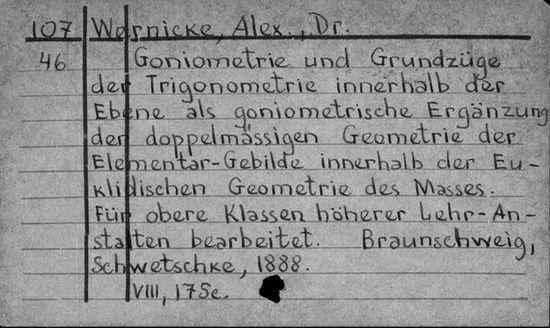 107 Wernicke, Alex., Dr.
46 Goniometrie und Grundzüge
der Trigonometrie innerhalb der
Ebene als goniometrische Ergänzung
der doppelmässigen Geometrie der
Elementar-Gebilde innerhalb der Eu-
klidischen Geometrie des Masses.
Für obere Klassen höherer Lehr-An-
stalten bearbeitet. Braunschweig,
Schwetschke, 1888.
VIII, 17 Se.